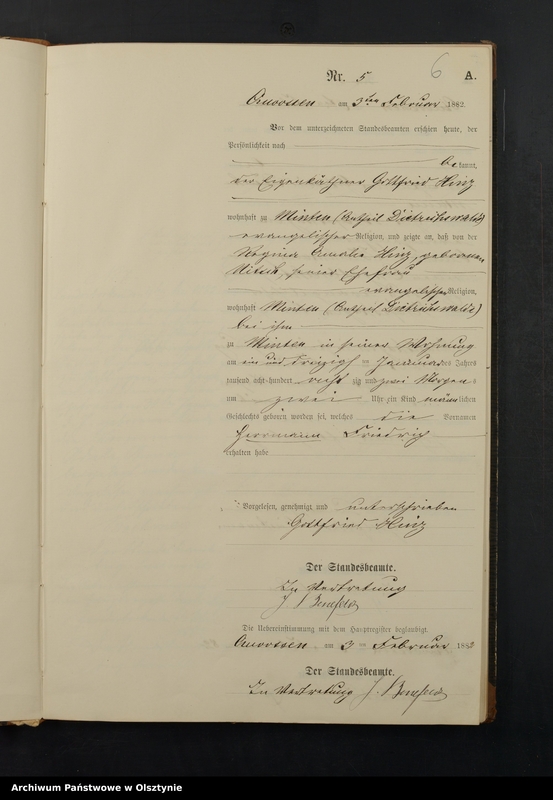 Nr. 5
6
A.
am 3ten Februar 1882.
Vor dem unterzeichneten Standesbeamten erschien heute, der
Persönlichkeit nach
be kannt,
der Eigenkäthner Gottfried Hinz
wohnhaft zu Minten (Antheil Dietrichswalde)
evangelischer Religion, und zeigte an, daß von der
Regina Amalie Hinz, geborenen
seiner Ehefrau
evangelischer Religion,
wohnhaft Minten (Antheil Dietrichswalde)
bei ihm
zu Minten in seiner Wohnung
am ein und dreizigsten Januar des Jahres
tausend acht hundert acht zig und zwei Morgens
um zwei Uhr ein Kind männlichen
Geschlechts geboren worden sei, welches die Vornamen
Herrmann Friedrich
erhalten habe
Vorgelesen, genehmigt und unterschrieben
Gottfried Hinz
Der Standesbeamte.
In Vertretung
Die Uebereinstimmung mit dem Hauptregister beglaubigt.
am 3 ten Februar 1882
Der Standesbeamte.
In Vertretung
Archiwum Państwowe w Olsztynie